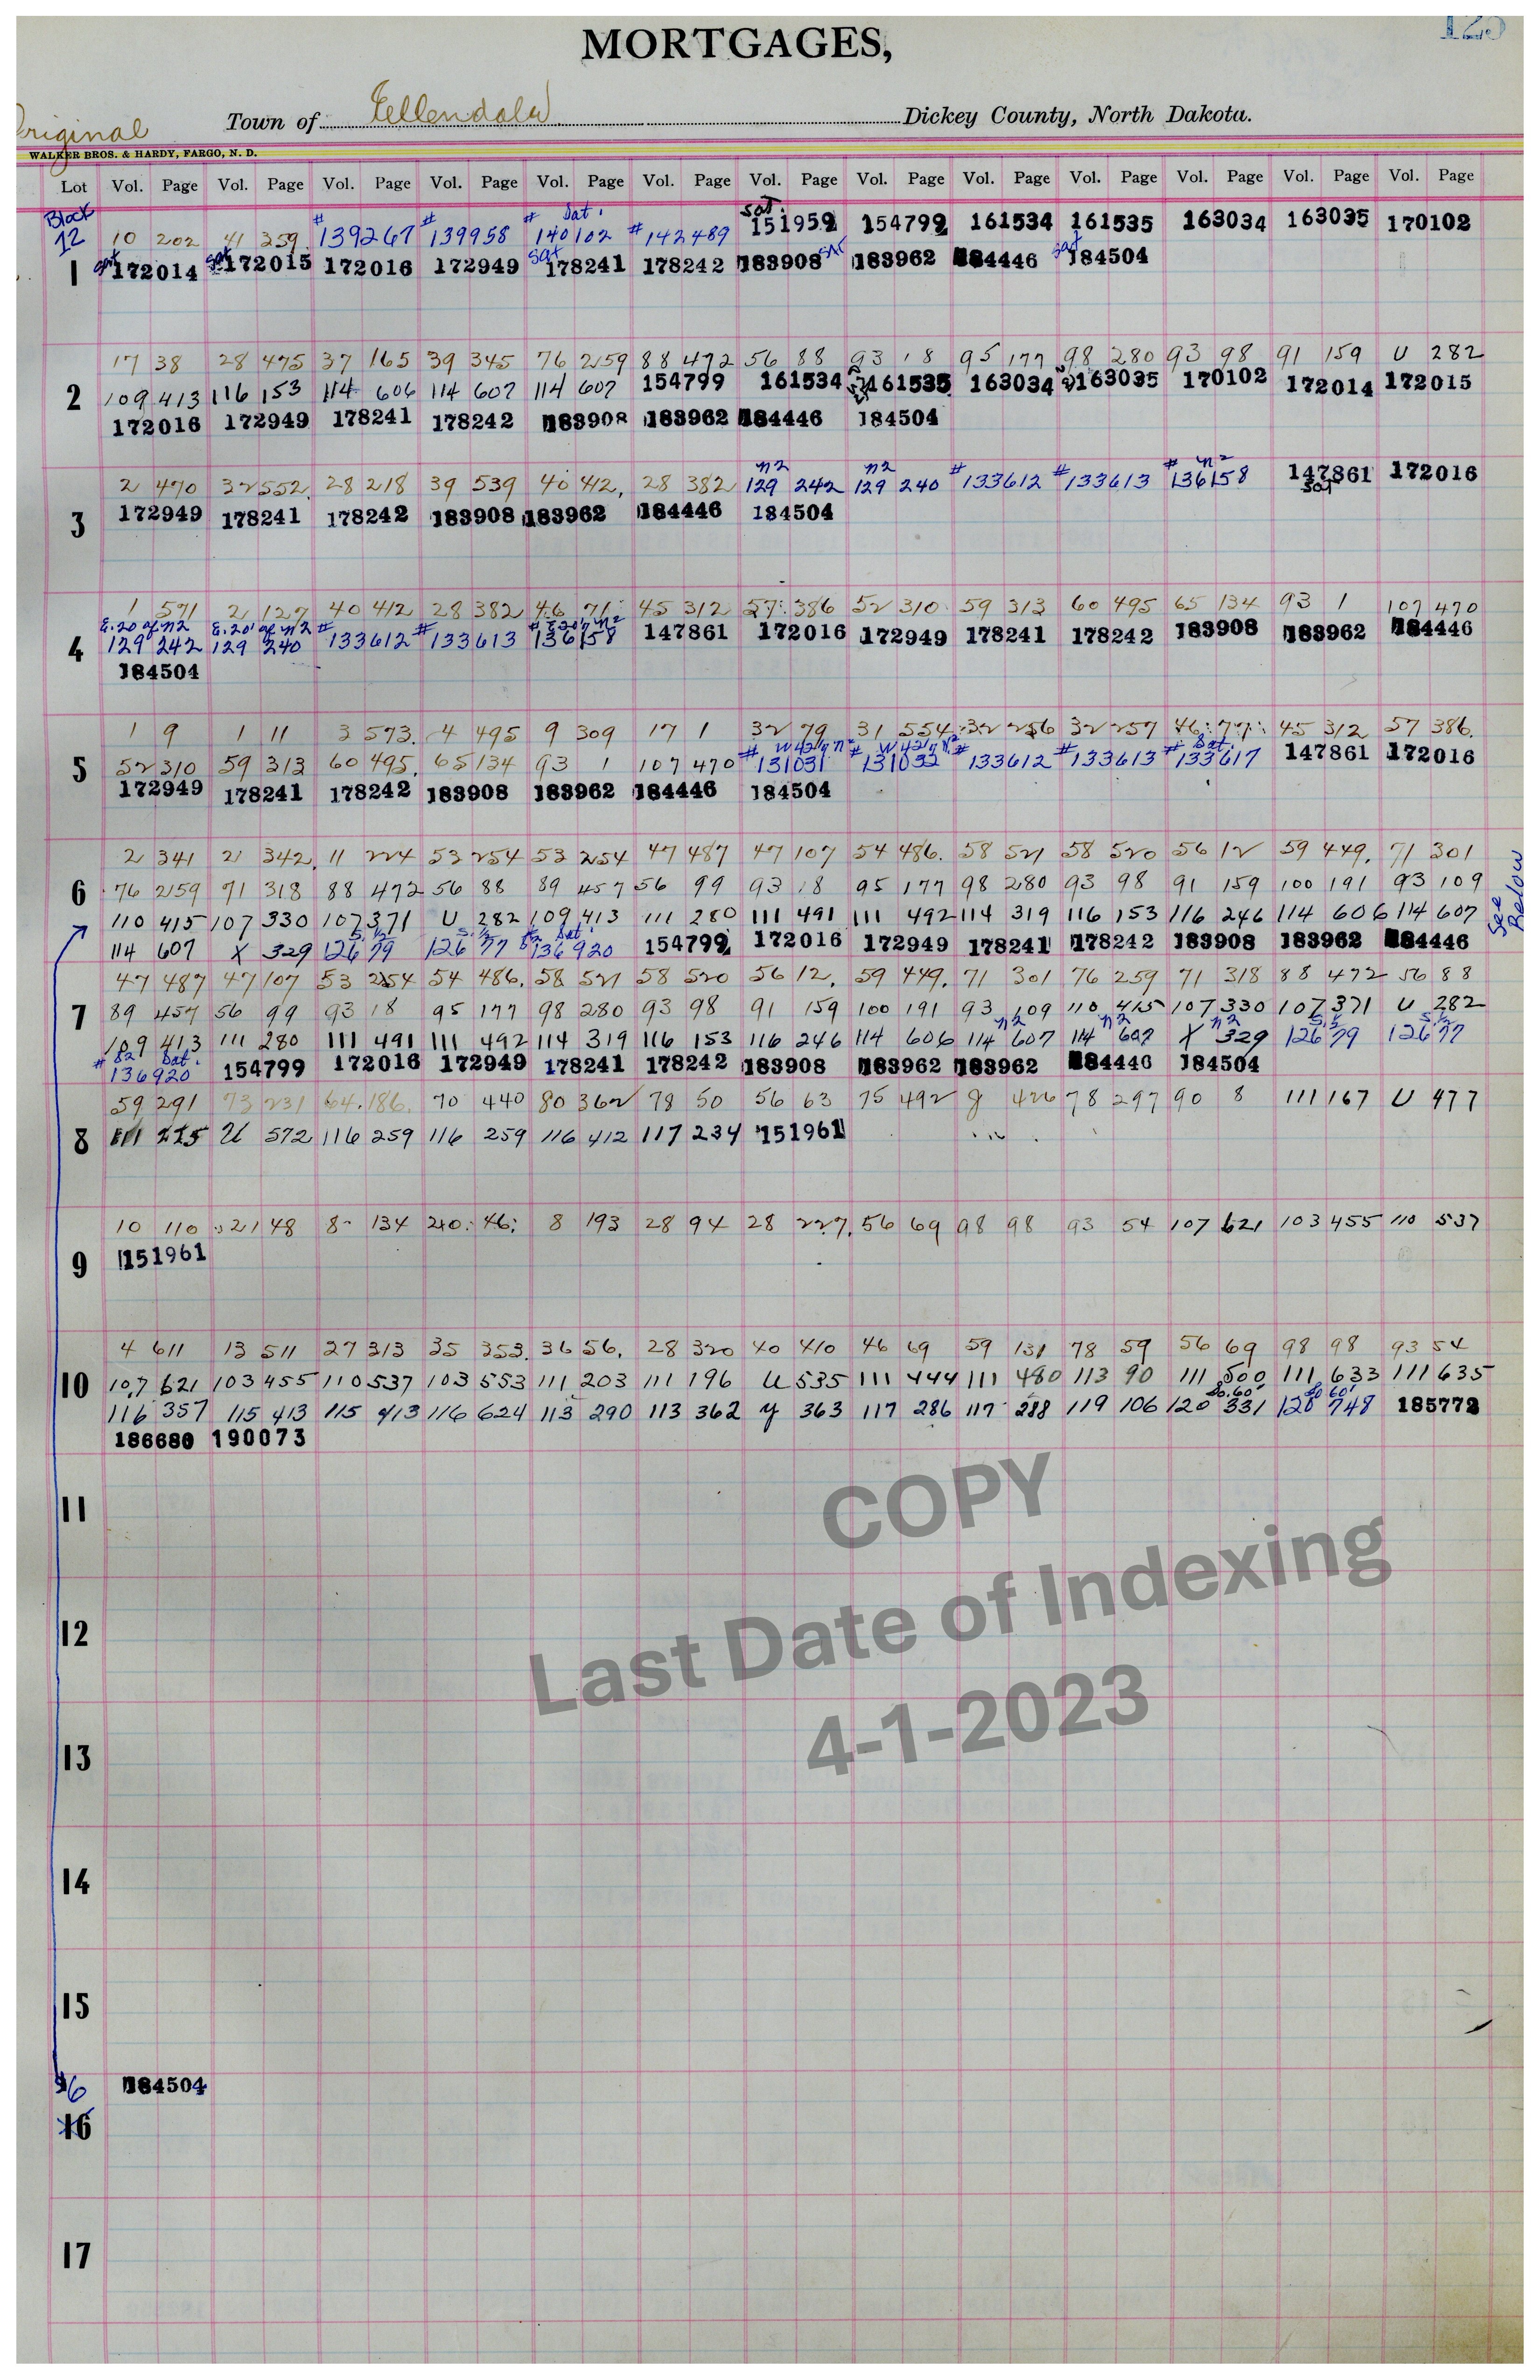 125
MORTGAGES,
Original
Town of Ellendale Dickey County, North Dakota.
WALKER BROS. & HARDY, FARGO, N. D.
Lot Vol. Page Vol. Page Vol. Page Vol. Page Vol. Page Vol. Page Vol. Page Vol. Page Vol. Page Vol. Page Vol. Page Vol. Page Vol. Page
Block # # # Sat. Sat.
12 10 202 41 259 139267 139958 140102 # 142489 151959 154799 161534 161535 163034 163035 170102
1 Sat 172014 Sat 172015 172016 172949 Sat 178241 178242 183908 Sat 183962 184446 Sat 184504
17 38 28 475 37 165 39 345 76 259 88 472 56 88 93 18 95 177 98 280 93 98 91 159 U 282
2 109 413 116 153 114 606 114 607 114 607 154799 161534 161535 163034 163035 170102 172014 172015
172016 172949 178241 178242 183908 183962 184446 184504
n2 n2 # # # n2
2 470 32 552 28 218 39 539 40 412, 28 382 129 242 129 240 133612 133613 136158 147861 172016
3 172949 178241 178242 183908 183962 184446 184504
1 571 2 127 40 412 28 382 46 71 45 312 57 386 52 310 59 313 60 495 65 134 93 1 107 470
E. 20 of n2 E. 20' of n2 # # # E 20' n2
4 129 242 129 240 133612 133613 136158 147861 172016 172949 178241 178242 183908 183962 184446
184504
1 9 1 11 3 573. 4 495 9 309 17 1 32 79 31 554 32 256 32 257 46 77 45 312 57 386.
# # # # # Sat.
5 52 310 59 313 60 495. 65 134 93 1 107 470 131031 131032 133612 133613 133617 147861 172016
172949 178241 178242 183908 183962 184446 184504
2 341 21 342. 11 224 53 254 53 254 47 487 47 107 54 486. 58 521 58 520 56 12 59 449. 71 301
6 76 259 71 318 88 472 56 88 89 457 56 99 93 18 95 177 98 280 93 98 91 159 100 191 93 109 See Below
110 415 107 330 107 371 U 282 109 413 111 280 111 491 111 492 114 319 116 153 116 246 114 606 114 607
114 607 X 329 126 79 126 77 # Sat. 136920 154799 172016 172949 178241 178242 183908 183962 184446
47 487 47 107 53 254 54 486. 58 521 58 520 56 12, 59 449. 71 301 76 259 71 318 88 472 56 88
7 89 457 56 99 93 18 95 177 98 280 93 98 91 159 100 191 93 109 110 415 107 330 107 371 U 282
n2 n2 n2 S.½ S.½
109 413 111 280 111 491 111 492 114 319 116 153 116 246 114 606 114 607 114 607 X 329 126 79 126 77
# Sat.
136920 154799 172016 172949 178241 178242 183908 183962 183962 184446 184504
59 291 73 231 64 186. 70 440 80 362 78 50 56 63 75 492 g 426 78 297 90 8 111 167 U 477
8 111 225 U 572 116 259 116 259 116 412 117 234 151961
10 110 21 48 8 134 20 46 8 193 28 94 28 227. 56 69 98 98 93 54 107 621 103 455 110 537
9 151961
4 611 13 511 27 313 35 353. 36 56. 28 320 40 410 46 69 59 131 78 59 56 69 98 98 93 54
10 107 621 103 455 110 537 103 553 111 203 111 196 U 535 111 444 111 480 113 90 111 500 111 633 111 635
So. 60' So 60'
116 357 115 413 115 413 116 624 113 290 113 362 y 363 117 286 117 288 119 106 120 331 120 748 185772
186680 190073
11
COPY
Last Date of Indexing
4-1-2023
12
13
14
15
6 184504
16
17